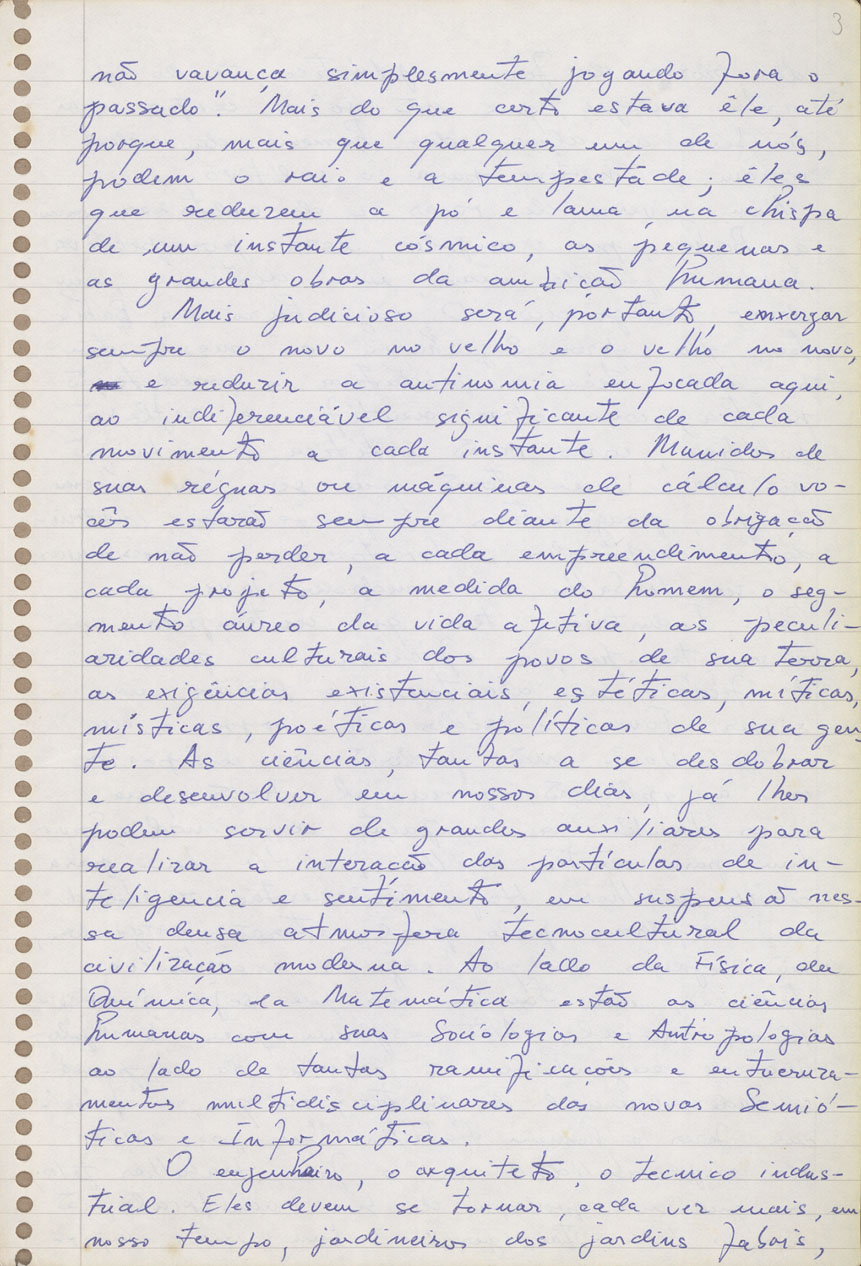 3
não vavança simplesmente jogando fora o
passado". Mais do que certo estava êle, até
porque, mais que qualquer um de nós,
podem o raio e a tempestade; êles
que reduzem a pó e lama, na chispa
de um instante cósmico, as pequenas e
as grandes obras da ambição humana.
Mais judicioso será, portanto, enxergar
sempre o novo no velho e o velho no novo,
e reduzir a antinomia enfocada aqui,
ao indiferenciável significante de cada
movimento a cada instante. Munidos de
suas réguas ou máquinas de cálculo vo-
cês estarão sempre diante da obrigação
de não perder, a cada empreendimento, a
cada projeto, a medida do homem, o seg-
mento áureo da vida afetiva, as peculi-
aridades culturais dos povos de sua terra,
as exigências existenciais, estéticas, míticas,
místicas, poéticas e políticas de sua gen-
te. As ciências, tantas a se desdobrar
e desenvolver em nossos dias, já lhes
podem servir de grandes auxiliares para
realizar a interacção das partículas de in-
teligencia e sentimento, em suspensão nes-
sa densa atmosfera tecnocultural da
civilização moderna. Ao lado da Física, da
Química, da Matemática estão as ciências
humanas com suas Sociologias e Antropologias
ao lado de tantas ramificações e entrecruza-
mentos multidisciplinares das novas Semió-
ticas e Informáticas.
O engenheiro, o arquiteto, o tecnico indus-
trial. Eles devem se tornar, cada vez mais, em
nosso tempo, jardineiros dos jardins fabris,